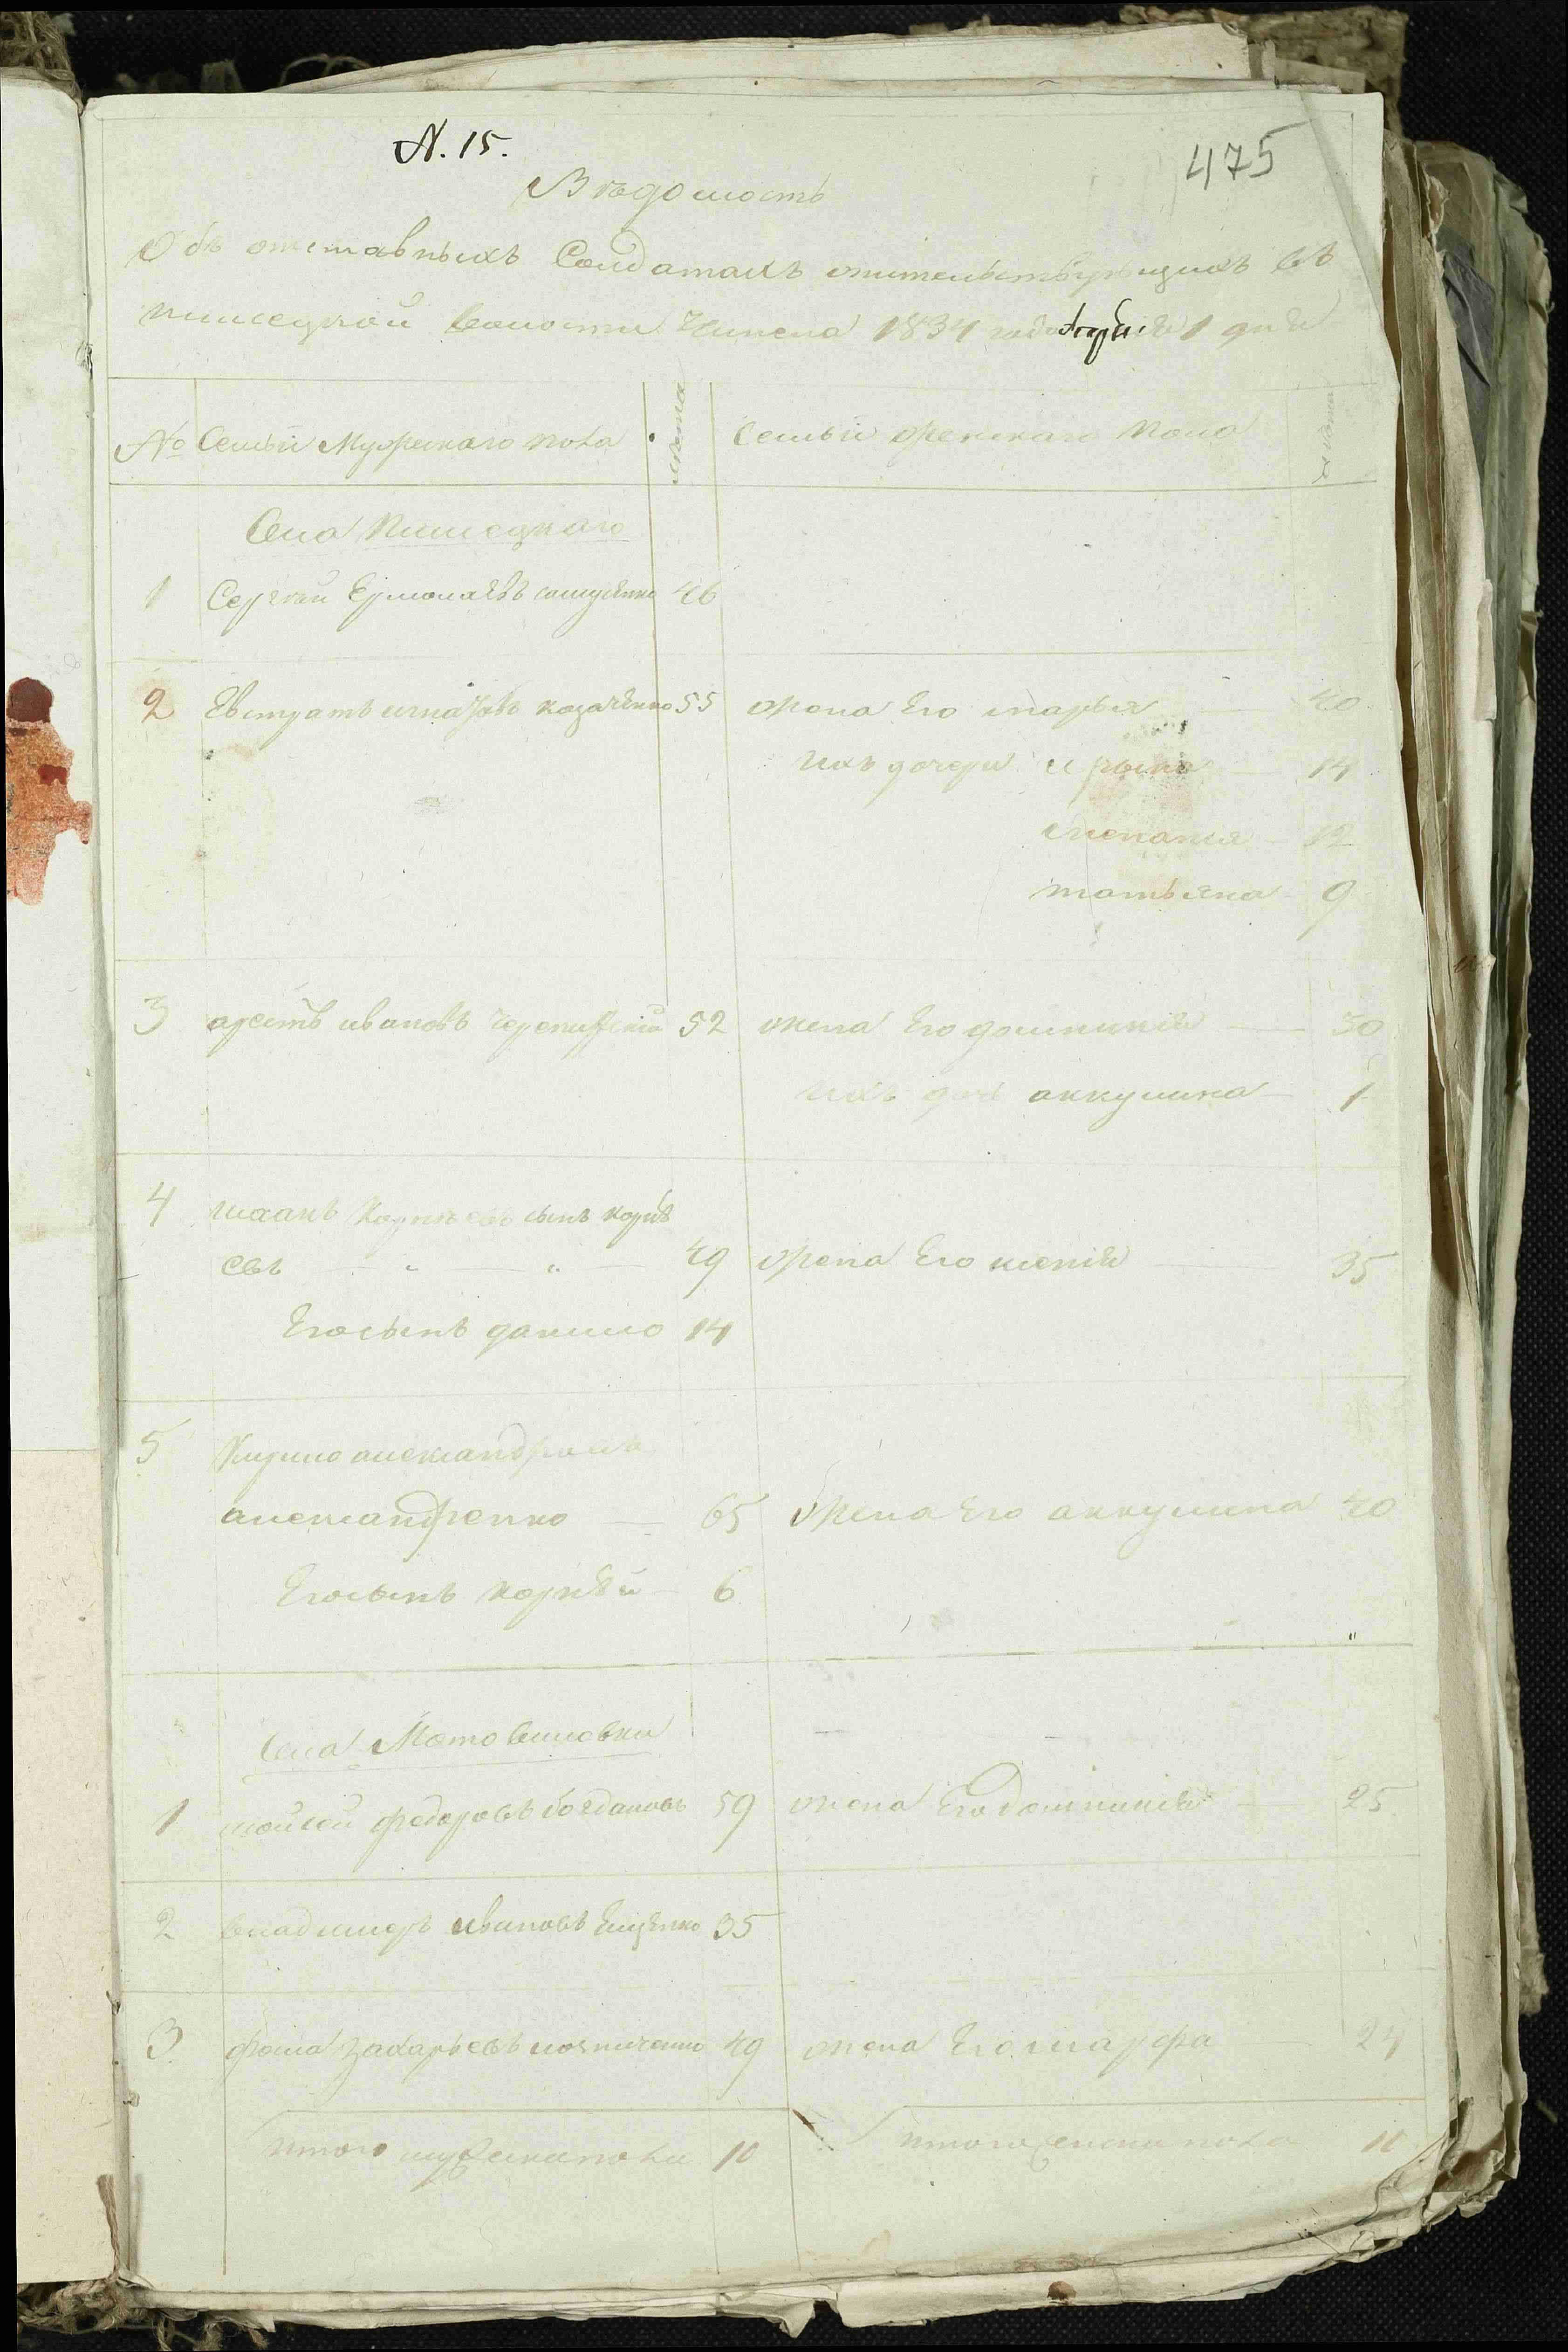 N. 15.
475
Вѣдомость
Объ отставныхъ Солдатахъ жительствующихъ въ
волости Чинена 1834 года Апреля 1 дня
№ Семьи Мужескаго пола лѣта Семьи женскаго пола лѣта
Села
1 Сергѣй Ермолаевъ 46
2 Евстратъ игнатовъ козаченко 55 жена Его марья 40
ихъ дочери ирына 14
меланія 12
татьяна 9
3 ивановъ 52 жена Его домникия 30
ихъ дочь аккулина 1
4 Корнѣевъ сынъ корнѣ
евъ " " 49 жена Его ксенія 35
Его сынъ данило 14
5 Кирило александровъ
александренко 65 жена Его аккулина 40
Его сынъ корнѣй 6
Села Мотовиловки
1 мойсей федоровъ богдановъ 59 жена Его домникия 25
2 владимеръ ивановъ Ещенко 35
3 фома захарьевъ 49 жена Его марфа 24
итого мужеска пола 10 итого женска пола 11